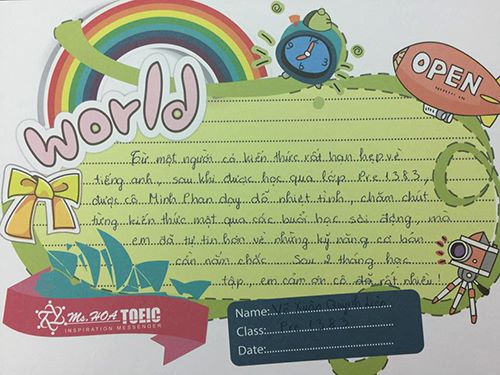 world
OPEN
Từ một người có kiến thức rất hạn hẹp về
tiếng anh, sau khi được học qua lớp Pre 1383,
được cô Minh Phan dạy dỗ nhiệt tình, chăm chút
từng kiến thức một qua các buổi học sôi động, mà
em đã tự tin hơn về những kỹ năng cơ bản
cần nắm chắc. Sau 2 tháng học
tập, em cảm ơn cô đã rất nhiều!
Ms. HOA TOEIC
INSPIRATION MESSENGER
Name:
Class: Pre
Date: